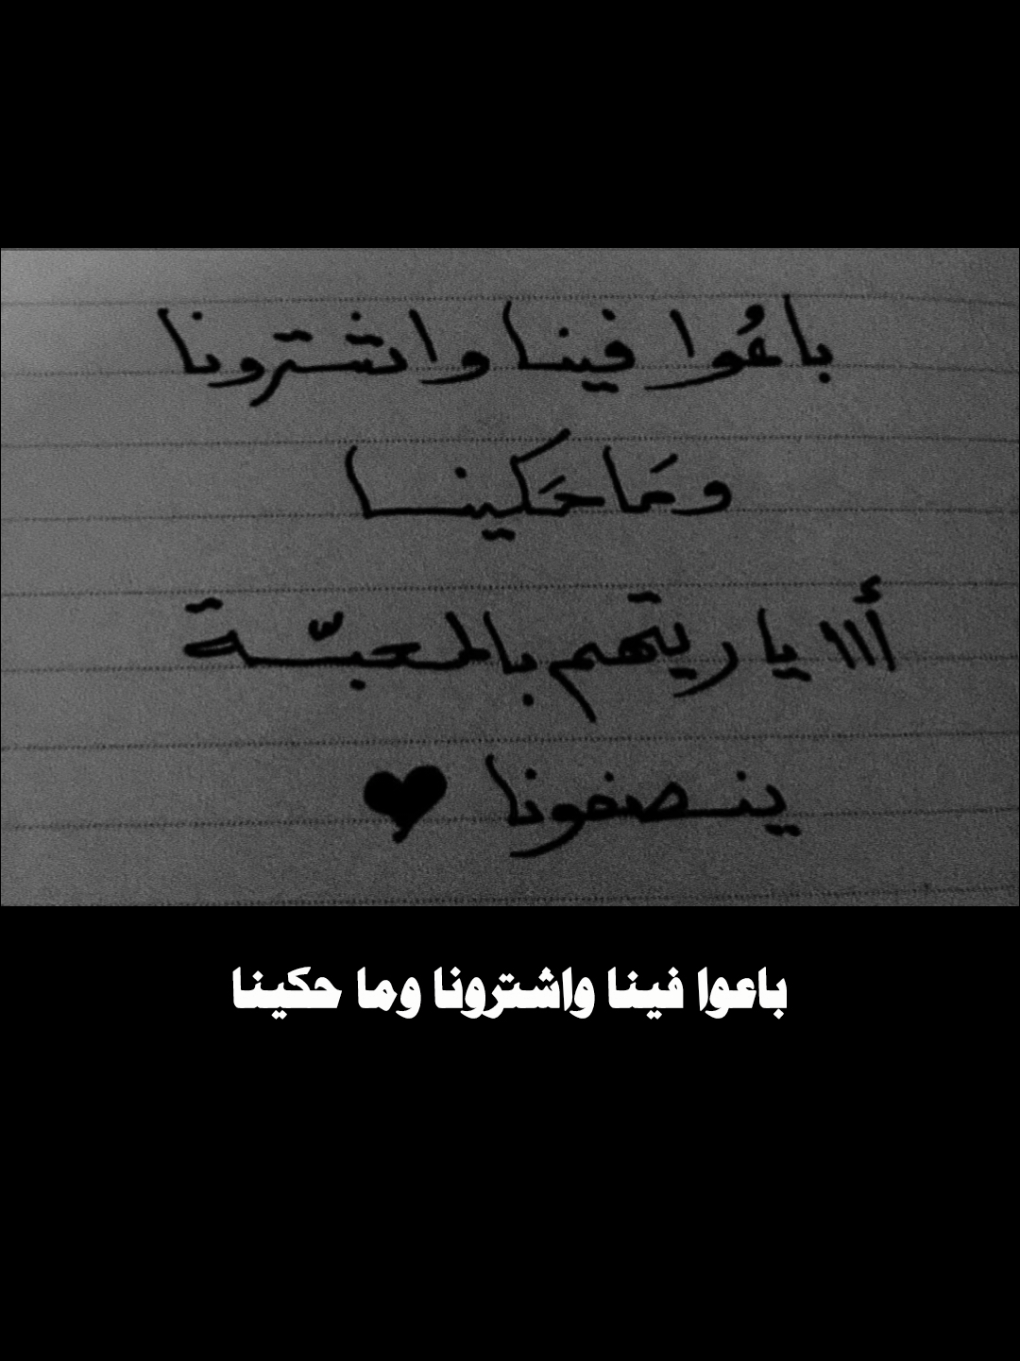 باعُوا فينا واشترونا
ومَا حَكينا
أااا يا ريتهم بالمحبّة
ينصفونا ♥
باعوا فينا واشترونا وما حكينا